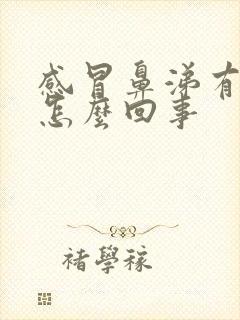 感冒鼻涕有
怎麼回事
褚學稼